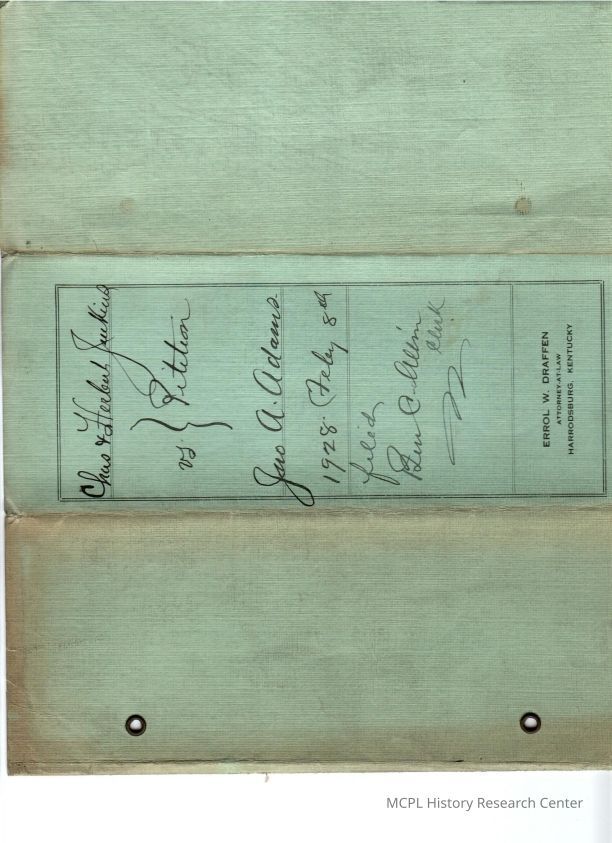 Chas & Herbert Jenkins
vs } Petition
Jno A. Adams
1928 Feby 8th
filed
Ben C. Allin
Clerk
ERROL W. DRAFFEN
ATTORNEY-AT-LAW
HARRODSBURG, KENTUCKY
MCPL History Research Center